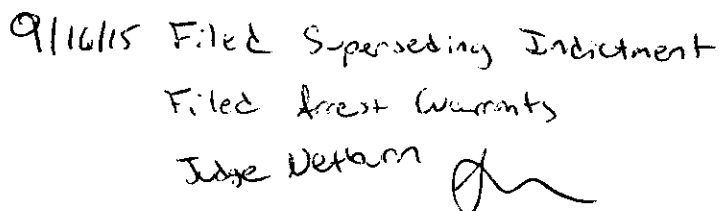 9/16/15 Filed Superseding Indictment
Filed Arrest Warrants
Judge Netburn